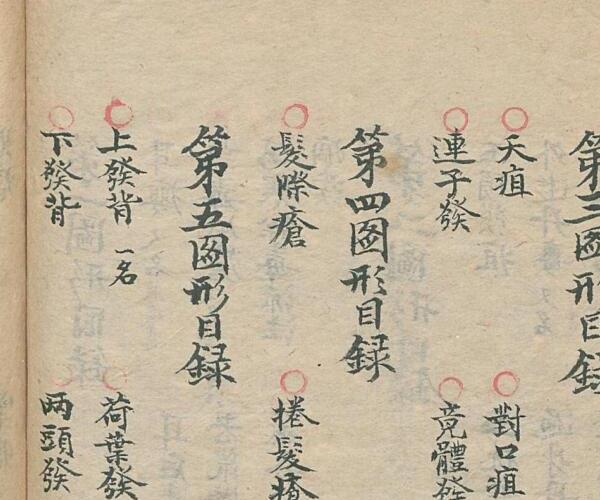 第三圖形目録
夭疽 對口疽
連子發 竟體發
第四圖形目録
髮際瘡 捲髮瘡
第五圖形目録
上發背 一名 荷葉發
下發背 兩頭發